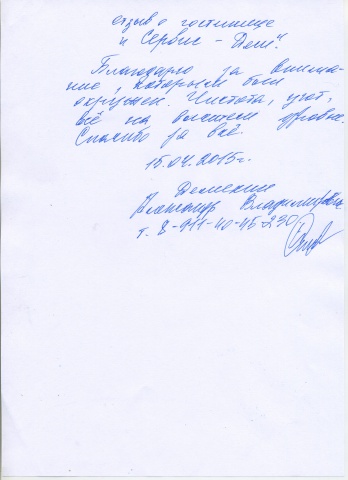 отзыв о гостинице
и Сервис - Дом".
Благодарю за внима-
ние, которым был
окружен. Чистота, уют,
всё на высшем уровне.
Спасибо за всё.
15.04.2015г.
Александр Владимирович
т. 8-911-40-45-230